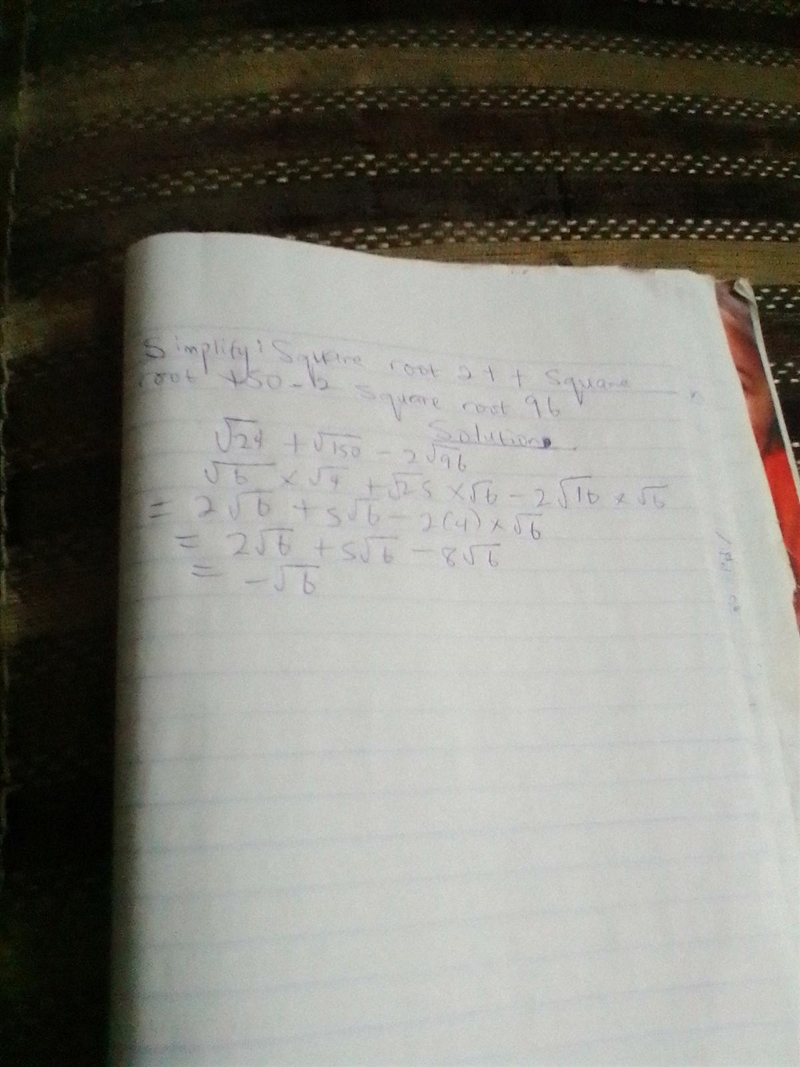 Simplify: Square root 24 + Square
root 150 - 2 Square root 96
Solution
√24 + √150 - 2√96
√6 × √4 + √25 × √6 - 2√16 × √6
= 2√6 + 5√6 - 2(4) × √6
= 2√6 + 5√6 - 8√6
= -√6